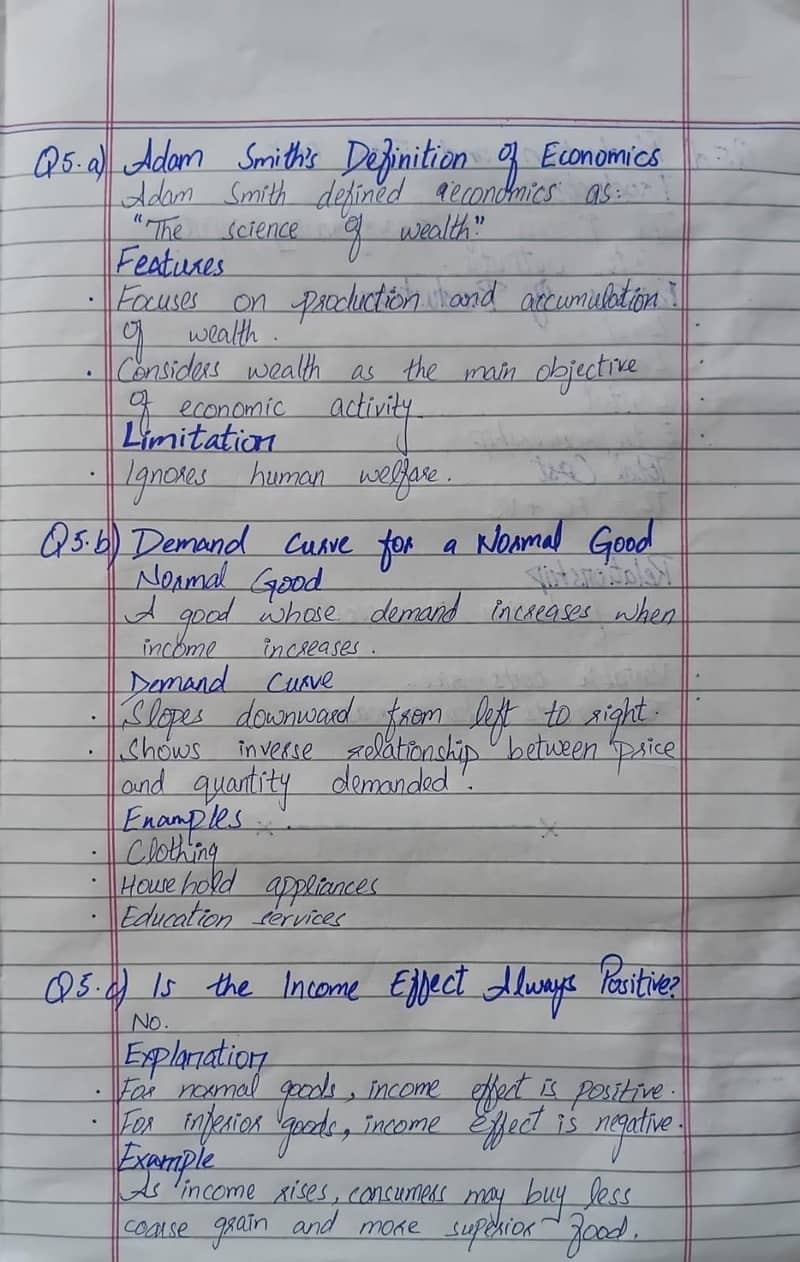 Q5.a) Adam Smith's Definition of Economics
Adam Smith defined economics as:
"The science of wealth."
Features
· Focuses on production and accumulation
of wealth.
· Considers wealth as the main objective
of economic activity
Limitation
· Ignores human welfare.
Q5.b) Demand Curve for a Normal Good
Normal Good
A good whose demand increases when
income increases.
Demand Curve
· Slopes downward from left to right.
· Shows inverse relationship between price
and quantity demanded.
Examples
· Clothing
· Household appliances
· Education services
Q5.c) Is the Income Effect Always Positive?
No.
Explanation
· For normal goods, income effect is positive.
· For inferior goods, income effect is negative.
Example
As income rises, consumers may buy less
coarse grain and more superior food.